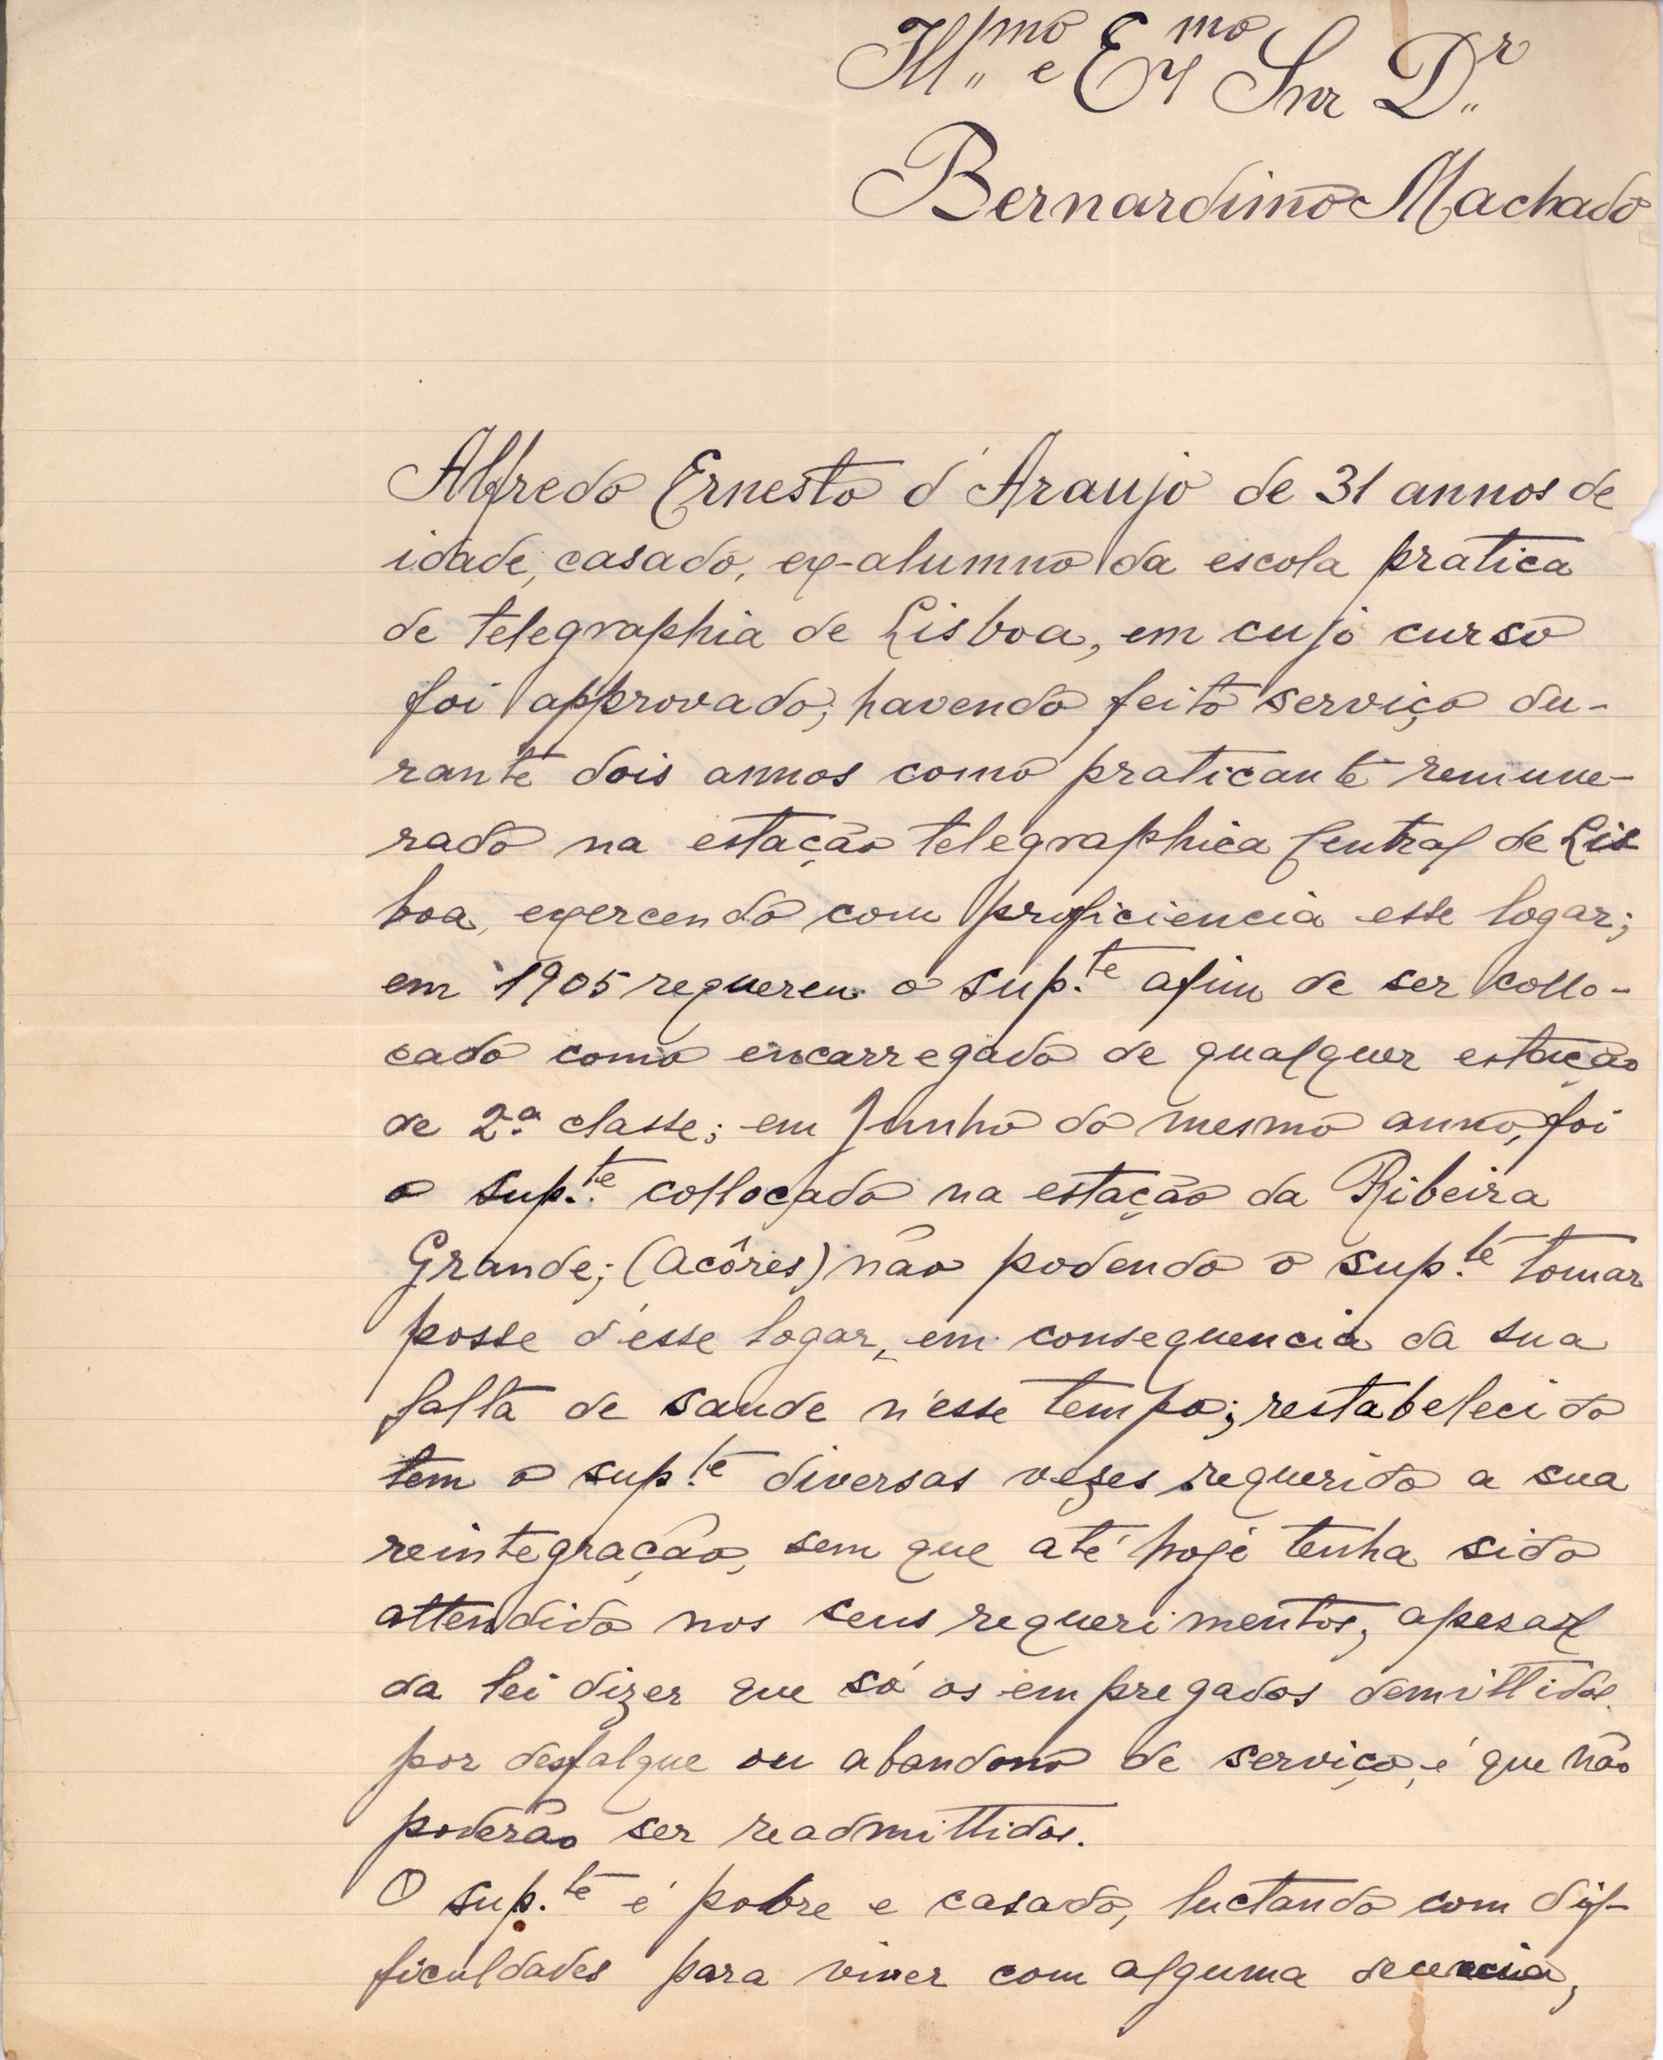 Ill.mo e Ex.mo Snr Dr.
Bernardino Machado
Alfredo Ernesto d'Araujo de 31 annos de
idade, casado, ex-alumno da escola pratica
de telegraphia de Lisboa, em cujo curso
foi approvado; havendo feito serviço du-
rante dois annos como praticante remune-
rado na estação telegraphica Central de Lis
boa, exercendo com proficiencia esse logar;
em 1905 requereu o sup.te afim de ser collo-
cado como encarregado de qualquer estação
de 2.ª classe; em Junho do mesmo anno, foi
o sup.te collocado na estação da Ribeira
Grande; (Acôres) não podendo o sup.te tomar
posse d'esse logar, em consequencia da sua
falta de saude n'esse tempo; restabelecido
tem o sup.te diversas vezes requerido a sua
reintegração, sem que até hoje tenha sido
attendido nos seus requerimentos, apesar
da lei dizer que só os empregados demittidos
por desfalque ou abandono de serviço, é que não
poderão ser readmittidos.
O sup.te é pobre e casado, luctando com dif-
ficuldades para viver com alguma decencia,